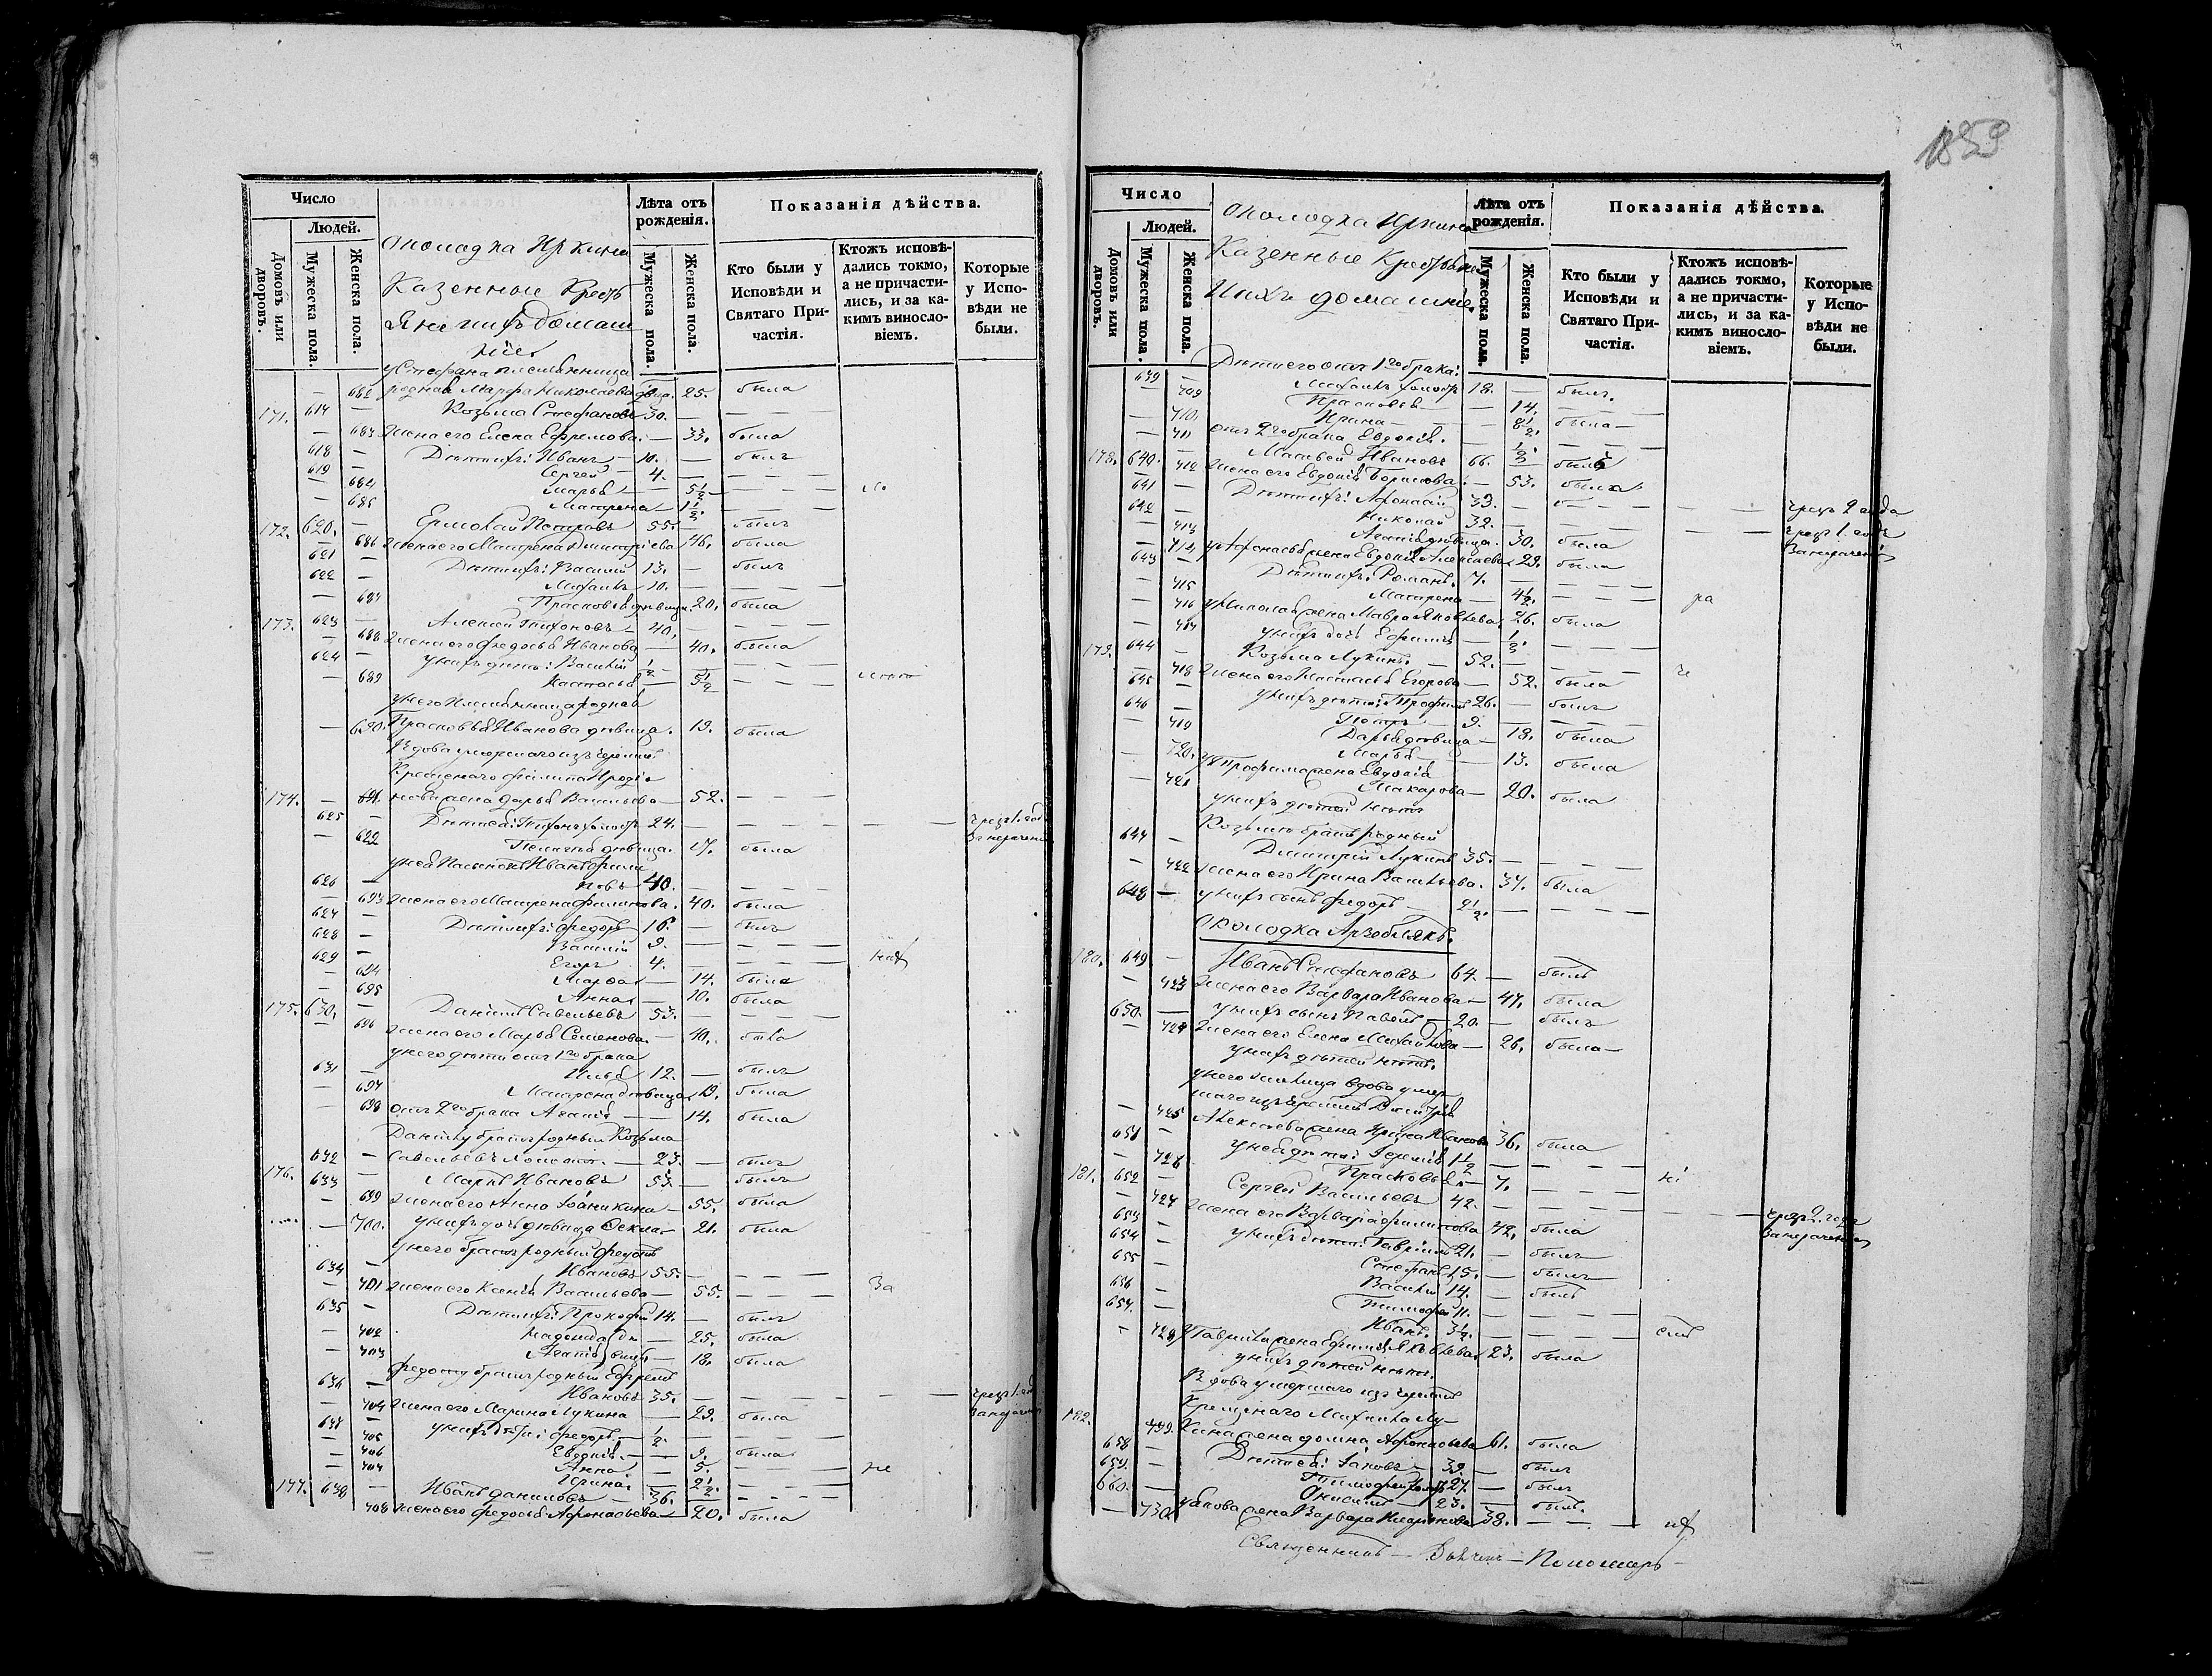 1859
Число
Лѣта отъ рожденія.
Показанія дѣйства.
Людей.
Домовъ или дворовъ.
Мужеска пола.
Женска пола.
околодка Иркина
Казенные Кресть
яне и ихъ домаш
ніе
Мужеска пола.
Женска пола.
Кто были у Исповѣди и Святаго Причастія.
Ктожъ исповѣдались токмо, а не причастились, и за какимъ винословіемъ.
Которые у Исповѣди не были.
у Стефана племянница
682 родная Марфа Николаева 25. была
171. 617 — Козьма Стефановъ 30. — — —
— 683 жена его Елена Ефремова — 33. была
618 — Дѣти ихъ: Иванъ — 10. — былъ
619 — Сергей — 4. — — —
— 684 Марья — 5½ — — —
— 685 Матрена — 1½ — — —
172. 620. — Ермолай Петровъ 55. — былъ
— 686 жена его Матрена Дмитріева 46. была
621 — Дѣти ихъ: Василій 13. — былъ
622 — Михаилъ 10. — — —
— 687 Прасковья дѣвица. 20. была
173. 623 — Алексей Тихоновъ — 40. — — —
— 688 жена его Федосья Иванова — 40. была
624 — у нихъ дѣти: Василій ½ — — —
— 689 Настасья — 5½ — — —
у него племянница родная
— 690. Прасковья Иванова дѣвица. 19. была
Вдова умершаго изъ
174. — 691. жена Дарья Васильева — 52. — — —
625 — Дѣти ея: Тихонъ холостъ 24. — — — — — чрезъ 1. годъ
— 692 Пелагея дѣвица. 17. была
у нея пасынокъ Иванъ Фили
626 — повъ 40. — — —
— 693 жена его Матрена Филипова. 40. была
627 — Дѣти ихъ: Федоръ 16. — былъ
628 — Василій 9. — — —
629 — Егоръ 4. — — —
— 694 Марфа — 14. была
— 695 Анна — 10. была
175. 630. — Данилъ Савельевъ 53. — — —
— 696 жена его Марья Семенова. — 40. была
у него дѣти отъ 1го брака
631 — Илья 12. — былъ
— 697 Матрена дѣвица 19. была
— 698 отъ 2го брака Агафья — 14. была
Данилу братъ родный Козьма
632 — Савельевъ холостъ. — 23. — былъ
176. 633 — Маркъ Ивановъ 57. — былъ
— 699 жена его Анна Іоаникина — 55. была
— 700. у нихъ дочь дѣвица Фекла — 21. была
у него братъ родный Федотъ
634 — Ивановъ 55. — — —
— 701 жена его Ксенія Васильева — 55. — — — За
635 — Дѣти ихъ: Прокофій 14. — былъ
— 702 Надежда — 25. была
— 703 Агафья — 18. была
Федоту братъ родный Ефремъ
636 — Ивановъ 35. — — — — — чрезъ 1. годъ
— 704 жена его Марина Лукина — 29. была
637 — у нихъ дѣти: Федоръ. — ½. — — —
— 705 Евдокія. — 9. была
— 706 Анна — 5. — — — не
— 707 Ирина. — 2½. — — —
177. 638 — Иванъ Даниловъ — 36. — — —
708 жена его Федосья Афонасьева — 20. была
Число
Лѣта отъ рожденія.
Показанія дѣйства.
Людей.
Домовъ или дворовъ.
Мужеска пола.
Женска пола.
околодка Иркина
Казенные Крестьяне
И ихъ домашніе.
Мужеска пола.
Женска пола.
Кто были у Исповѣди и Святаго Причастія.
Ктожъ исповѣдались токмо, а не причастились, и за какимъ винословіемъ.
Которые у Исповѣди не были.
Дѣти его отъ 1го брака:
639 — Михаилъ холостъ 18. — былъ.
— 709 Прасковья — 14. — — —
— 710. Ирина — 8½. была
— 711 отъ 2го брака Евдокія. — ½. — — —
178. 640. — Матвей Ивановъ 66. — былъ
— 712 жена его Евдокія Борисова. — 53. была
641 — Дѣти ихъ: Афонасій 33. — — — — — чрезъ 2 года
642 — Николай 32. — — — — — чрезъ 1. годъ
— 713 Агафья дѣвица. 30. была
За нерачені
— 714 у Афонасья жена Евдокія Алексеева 29. была
643 — Дѣти ихъ: Романъ. 7. — — —
— 715 Матрена — 4½. — — — ра
— 716 у Николая жена Мавра Яковлева. 26. была
— 717 у нихъ дочь — ½. — — —
179. 644 — Козьма Лукинъ. — 52. — — —
— 718 жена его Настасья Егорова — 52. была
645 — у нихъ дѣти: Трофимъ 26. — былъ
646 — Петръ — 9. — — —
— 719 Дарья дѣвица — 18. была
— 720. Марья — 13. была
у Трофима жена Евдокія
— 721 Макарова — 20. была
у нихъ дѣтей нѣтъ
Козьмы братъ родный
647 — Дмитрій Лукинъ 35. — — —
— 722 жена его Ирина Васильева. 37. была
648 — у нихъ сынъ Федоръ — 2½. — — —
Околодка Арзебликъ.
180. 649 — Иванъ Стефановъ 64. — былъ
— 723 жена его Варвара Иванова — 47. была
650. — у нихъ сынъ Павелъ — 20. — былъ
— 724 жена его Елена Михайлова — 26. была
у нихъ дѣтей нѣтъ.
— 725 Алексеева жена Ирина Иванова 36. была
651 — у нея дѣти: 1½ — — —
— 726 Прасковья — 7. — — —
181. 652 — Сергей Васильевъ 42. — — — — — чрезъ 2. года
— 727 жена его Варвара Филипова 42. была
За нераченіе
653 — у нихъ дѣти: Гавріилъ 21. — былъ
654 — Стефанъ 15. — былъ
655 — Василій 14. — былъ
656 — Тимофей 11. — — —
657. — Иванъ. 3½. — — —
— 728 у Гавріила жена Ефимія Яковлева 23. была
у нихъ дѣтей нѣтъ.
Вдова умершаго изъ
Крещенаго Михаила Лу-
182. 729. кина жена Домна Афонасьева 61. была
658 — Дѣти ея: Іаковъ — 39. — былъ
659. — Тимофей холостъ 27. — былъ
660. — Онисимъ — 23. — былъ.
— 730. у Якова жена Варвара 38. — — —
Священникъ — — Пономарь —